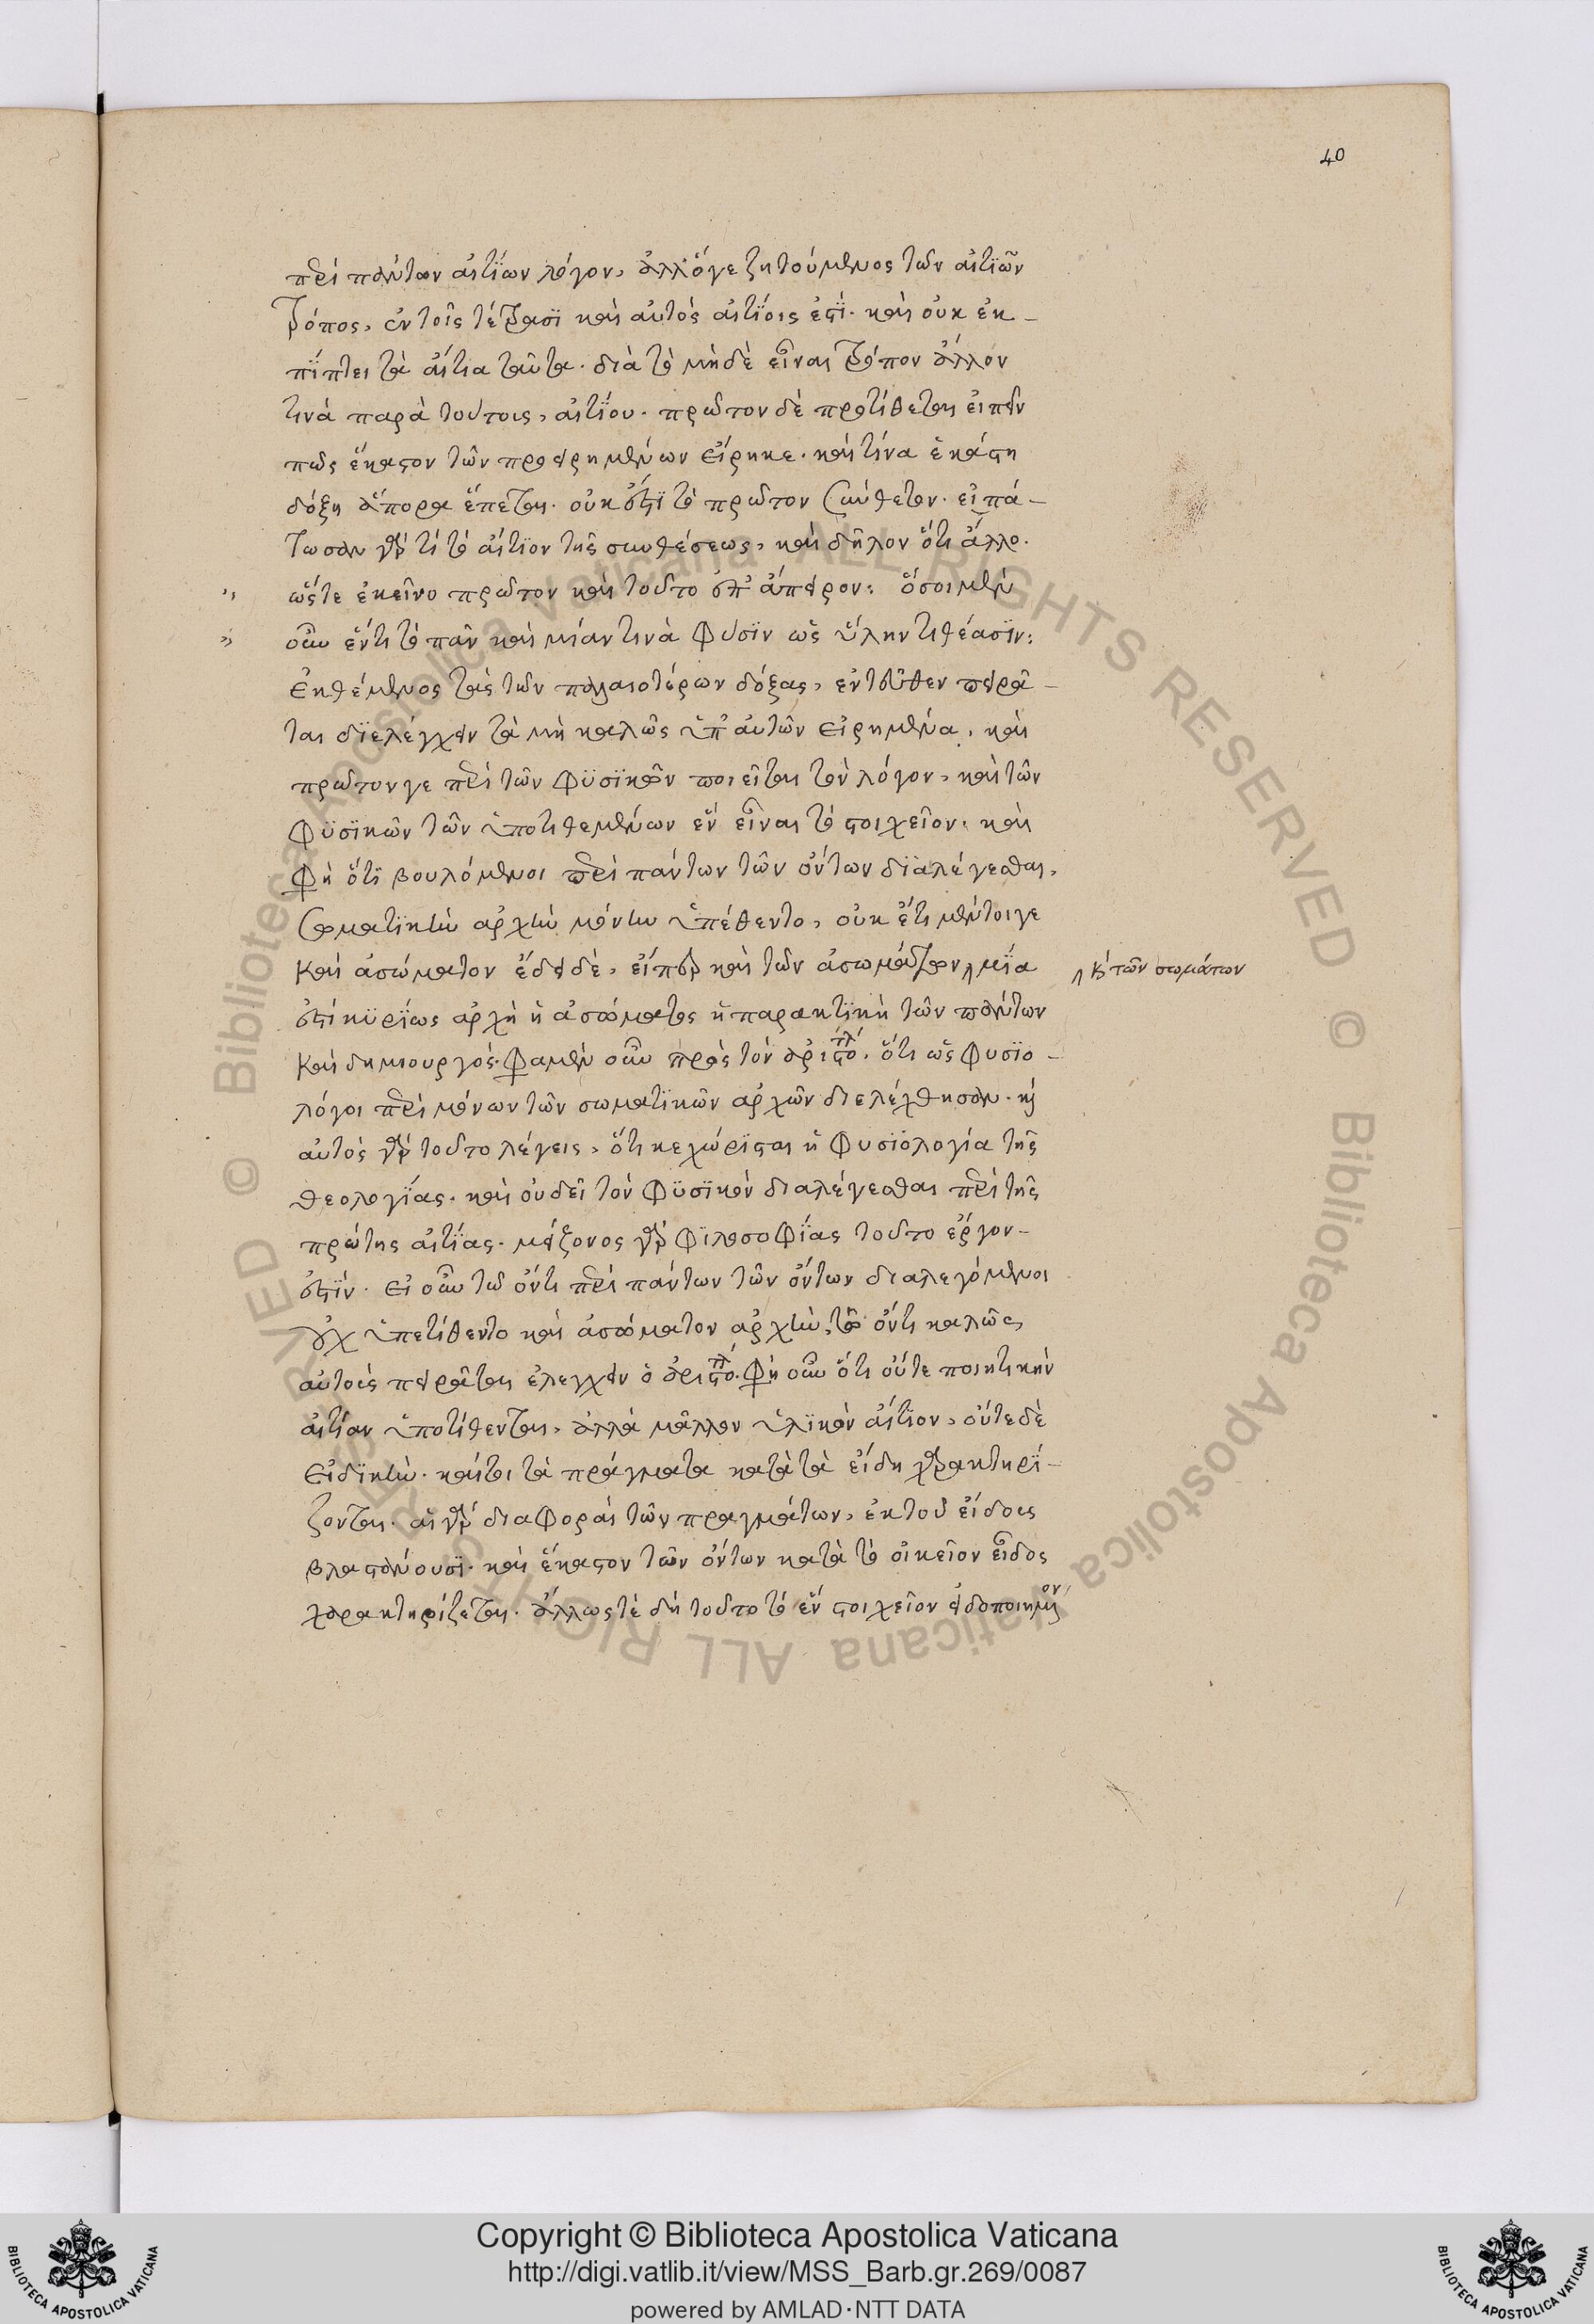 40
περὶ πάντων αἰτίων λόγον, ἀλλ' ὅγε ζητούμενος τῶν αἰτιῶν
τρόπος, ἐν τοῖς τέτρασϊ καὶ αὐτὸς αἰτΐοις ἐστΐ. καὶ οὐκ ἐκ-
πΐπτει τὰ αἴτια ταῦτα. διὰ τὸ μὴ δὲ εἶναι τρόπον ἄλλον
τινὰ παρὰ τούτοις, αἰτΐου. πρῶτον δὲ προτίθεται εἰπεῖν
πῶς ἕκαστον τῶν προειρημένων εἴρηκε. καὶ τίνα ἑκάστη
δόξη ἄπορα ἕπεται. οὐκ ἔστϊ τὸ πρῶτον σύνθετον. εἰπά-
τωσαν γὰρ τί τὸ αἴτϊον τῆς συνθέσεως, καὶ δῆλον ὅτι ἄλλο.
ὥστε ἐκεῖνο πρῶτον καὶ τοῦτο ἐπ' ἄπειρον: ὅσοι μὲν
οὖν ἕν τι τὸ πᾶν καὶ μίαν τινὰ φύσϊν ὡς ὕλην τιθέασϊν:
Ἐκθέμενος τὰς τῶν παλαιοτέρων δόξας, ἐντεῦθεν πειρᾶ-
ται διελέγχειν τὰ μὴ καλῶς ὑπ' αὐτῶν εἰρημένα. καὶ
πρῶτον γε περὶ τῶν φϋσϊκῶν ποιεῖται τὸν λόγον, καὶ τῶν
φϋσϊκῶν τῶν ὑποτιθεμένων ἓν εἶναι τὸ στοιχεῖον. καὶ
φη ὅτϊ βουλόμενοι περὶ πάντων τῶν ὄντων διαλέγεσθαι,
σωματϊκὴν ἀρχὴν μόνην ὑπέθεντο, οὐκ ἔτι μέντοιγε
καὶ ἀσώματον ἔδει δὲ, εἴπερ καὶ τῶν ἀσωμάτων μΐα
καὶ τῶν σωμάτων
ἐστὶ κϋρΐως ἀρχὴ ἡ ἀσώματος ἡ παρακτϊκὴ τῶν πάντων
καὶ δημιουργός. φαμὲν οὖν πρὸς τὸν ἀριστοτλ. ὅτι ὡς φυσϊο-
λόγοι περὶ μόνων τῶν σωματϊκῶν ἀρχῶν διελέχθησαν. καὶ
αὐτὸς γὰρ τοῦτο λέγεις, ὅτι κεχώρϊσται ἡ φυσϊολογία τῆς
θεολογΐας. καὶ οὐ δεῖ τὸν φϋσϊκὸν διαλέγεσθαι περὶ τῆς
πρώτης αἰτΐας. μείζονος γὰρ φϊλοσοφΐας τοῦτο ἔργον-
ἐστΐν. εἰ οὖν τῶ ὄντι περὶ πάντων τῶν ὄντων διαλεγόμενοι
οὐχ ὑπετίθεντο καὶ ἀσώματον ἀρχὴν, τῶ ὄντι καλῶς
αὐτοὺς πειρᾶται ἐλεγχειν ὁ ἀριστοτλ. φη οὖν ὅτι οὔτε ποιητικὴν
αἰτίαν ὑποτίθενται, ἀλλὰ μᾶλλον ὑλϊκὸν αἴτϊον, οὔτε δὲ
εἰδϊκὴν. καίτοι τὰ πράγματα κατὰ τὰ εἴδη χαρακτηρΐ-
ζονται. αἱ γὰρ διαφοραὶ τῶν πραγμάτων, ἐκ τοῦ εἴδους
βλαστάνουσϊ. καὶ ἕκαστον τῶν ὄντων κατὰ τὸ οἰκεῖον εἶδος
χαρακτηρίζεται. ἄλλως τὲ δὴ τοῦτο τὸ ἓν στοιχεῖον εἰδοποιημένον
Copyright © Biblioteca Apostolica Vaticana
http://digi.vatlib.it/view/MSS_Barb.gr.269/0087
powered by AMLAD·NTT DATA